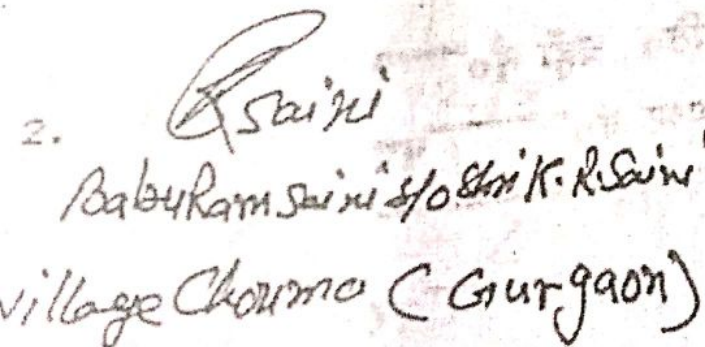 2. RSaini
Babu Ram Saini S/o Shri K.R. Saini
village Chouma (Gurgaon)